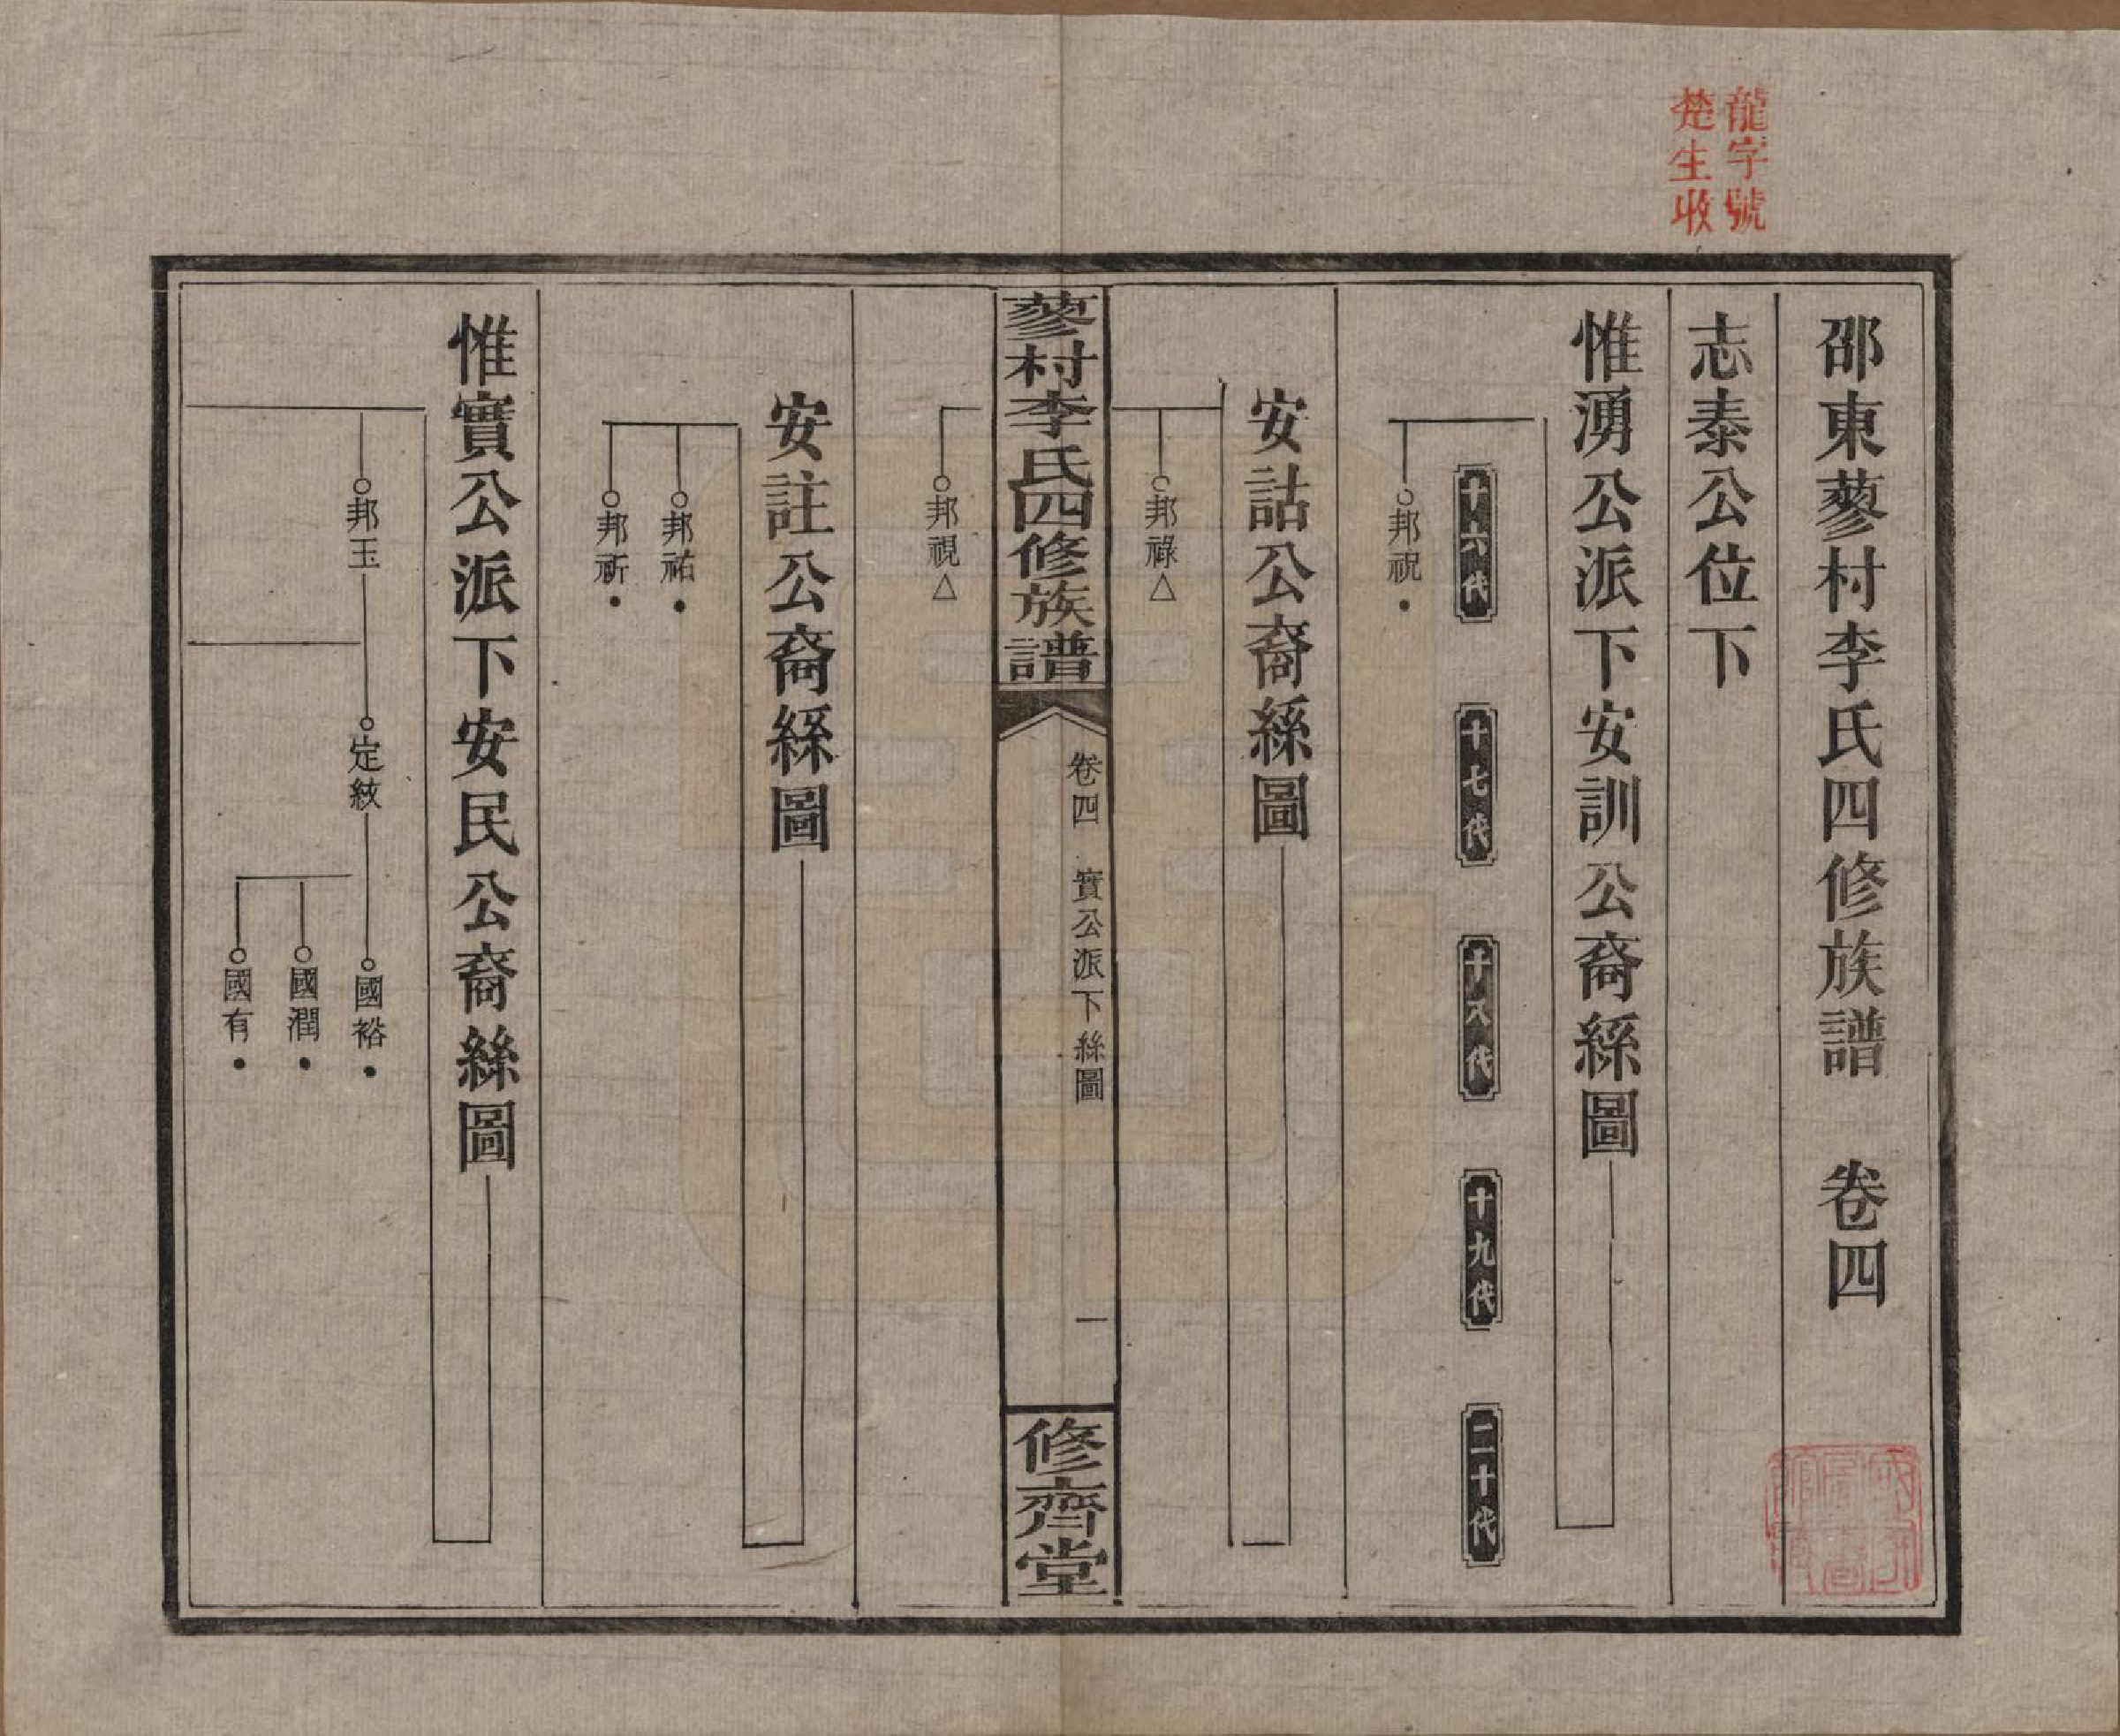 龍字號
楚生收
邵東蓼村李氏四修族譜　卷四
志泰公位下
惟湧公派下安訓公裔緜圖
十六代
十七代
十八代
十九代
二十代
邦祝
安詁公裔緜圖
邦祿△
蓼村李氏四修族譜
卷四　實公派下絲圖
一
修齊堂
邦視△
安註公裔緜圖
邦祐
邦祈
惟實公派下安民公裔絲圖
邦玉
定紋
國裕
國潤
國有